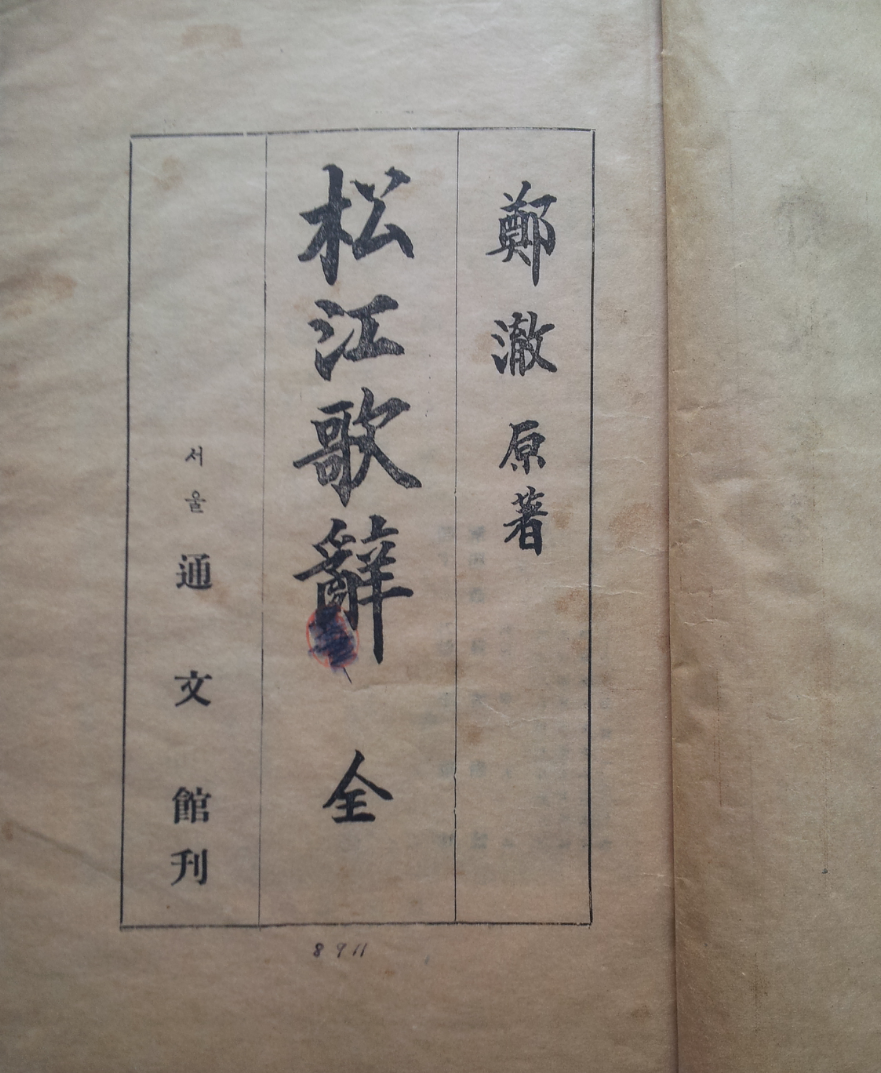 鄭澈 原著
松江歌辭 全
서울 通文館刊
8911